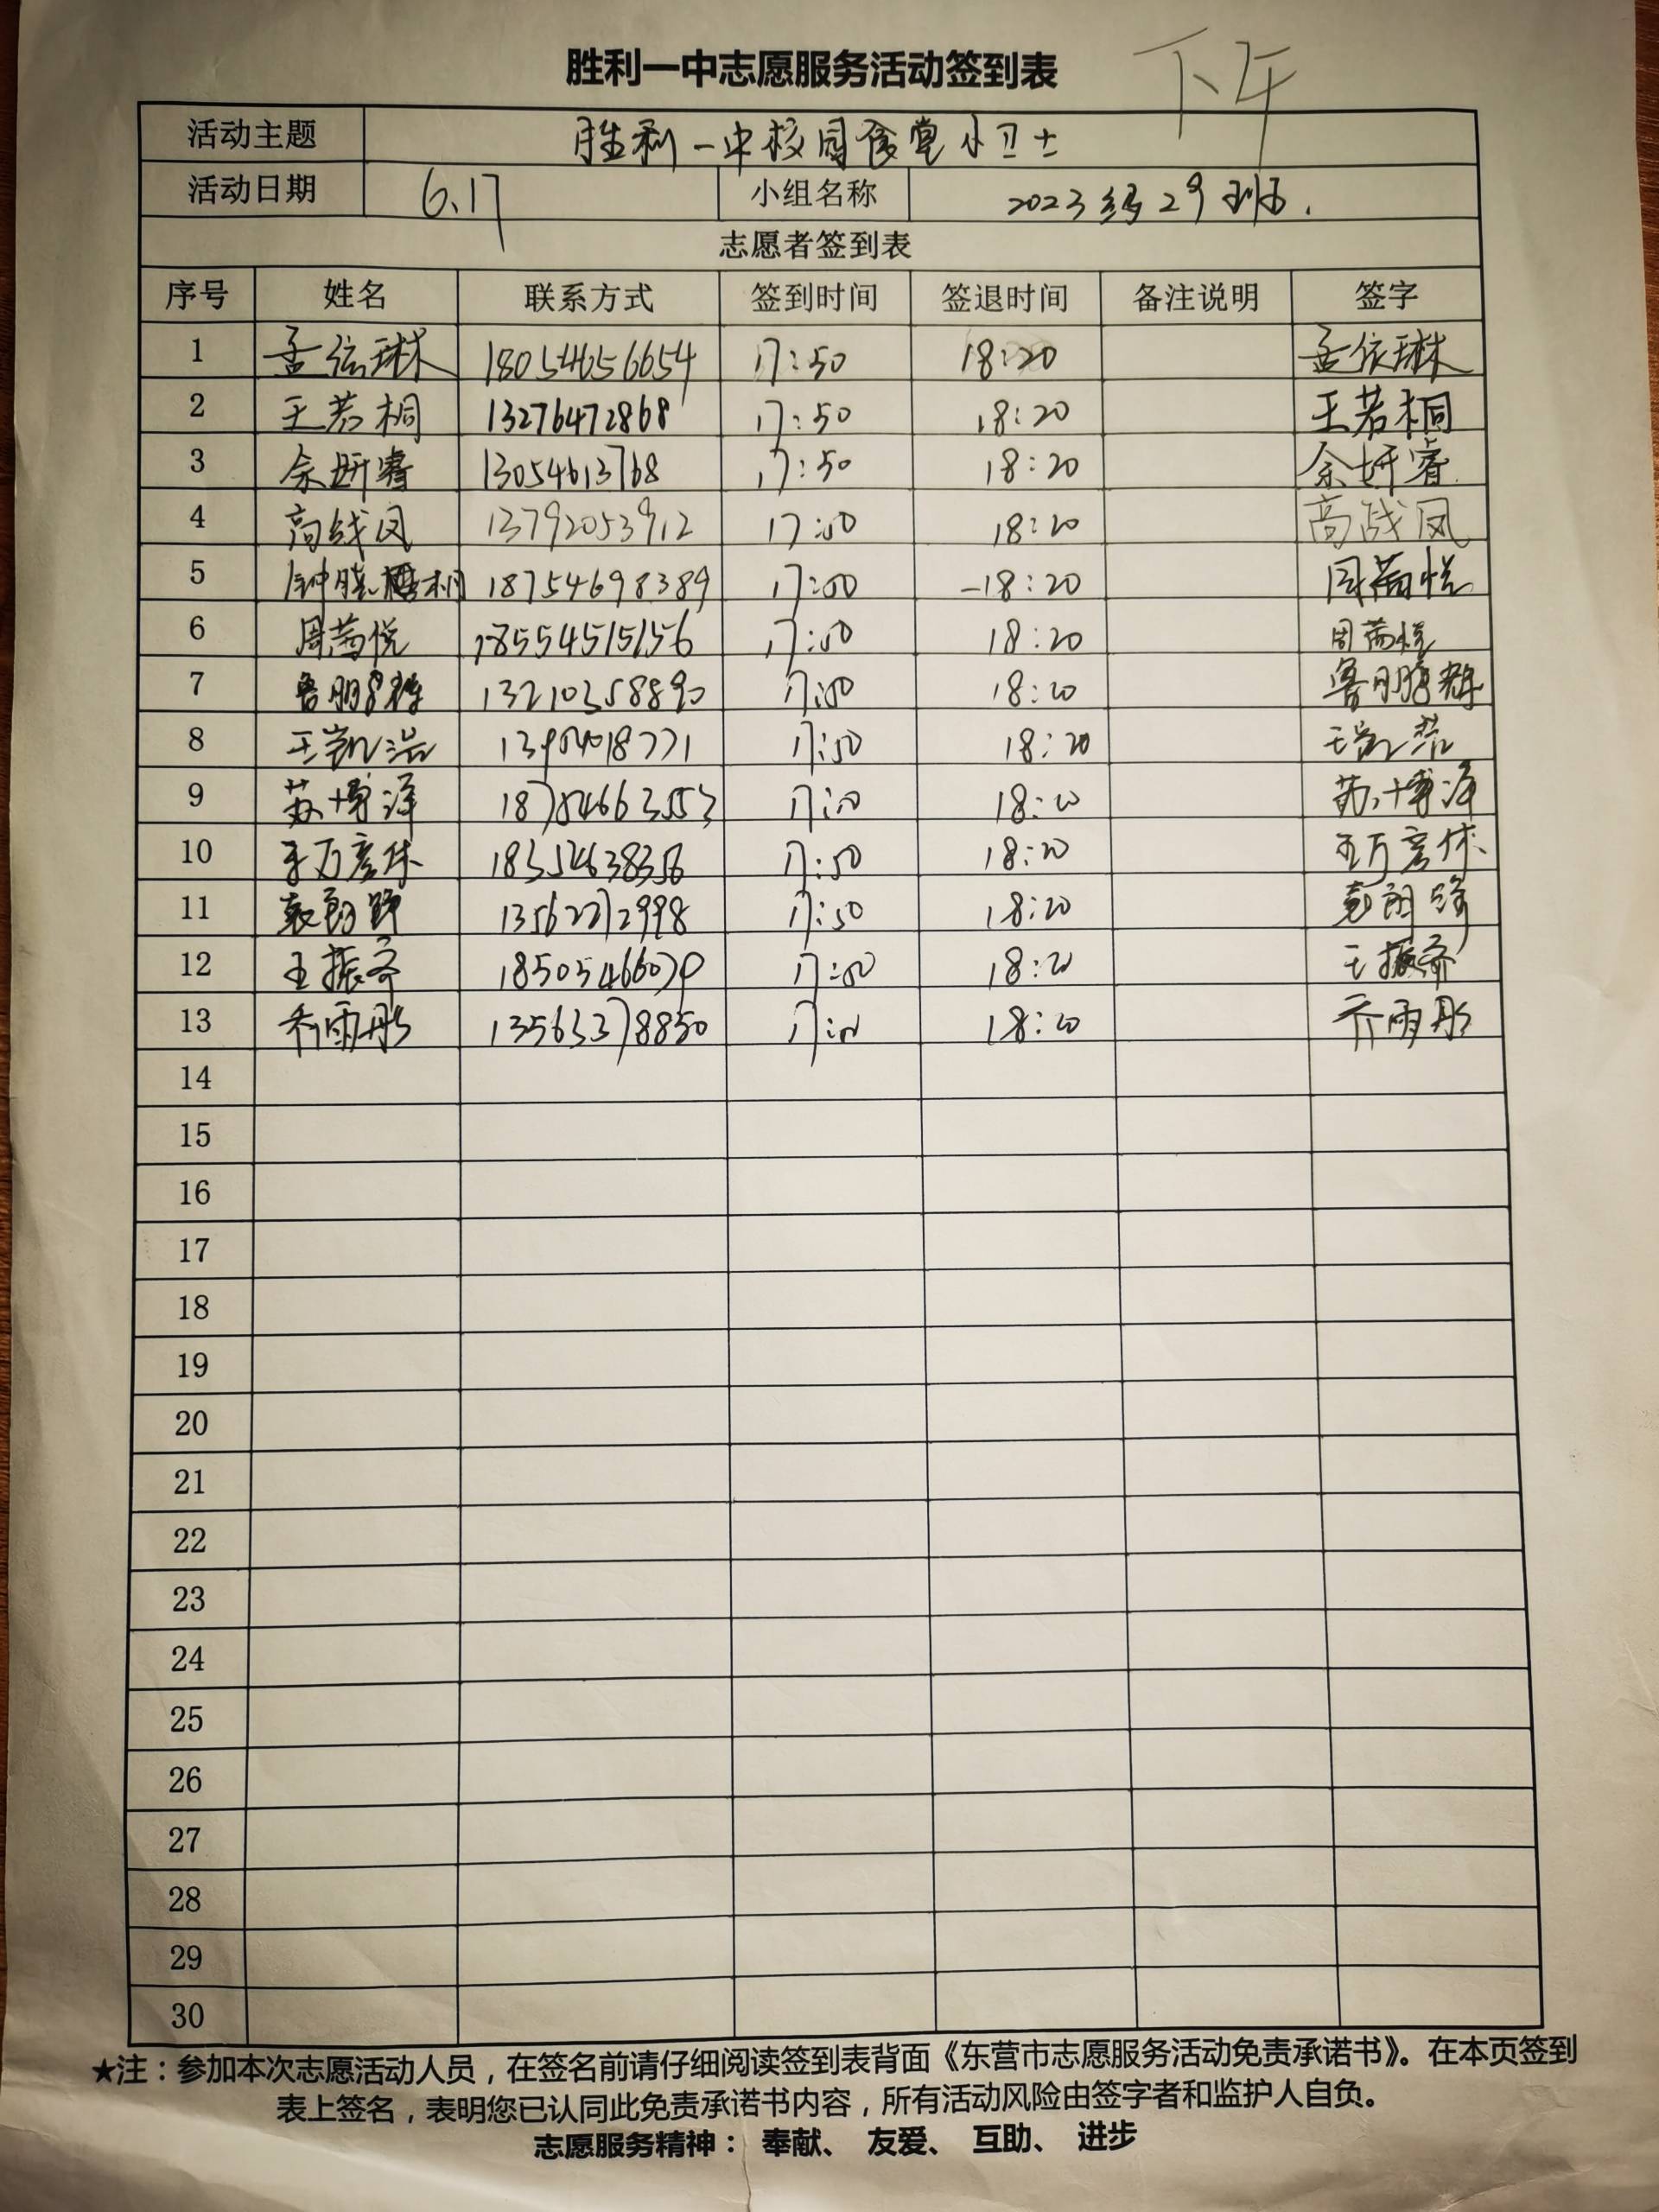 胜利一中志愿服务活动签到表 下午
活动主题 胜利一中校园食堂小卫士
活动日期 6.17 小组名称 2023级29班.
志愿者签到表
序号 姓名 联系方式 签到时间 签退时间 备注说明 签字
1 孟依琳 18054656654 17:50 18:20 孟依琳
2 王若桐 13276472868 17:50 18:20 王若桐
3 余妍睿 13054613768 17:50 18:20 余妍睿
4 高战凤 13792053912 17:50 18:20 高战凤
5 钟晓梧桐 18754698389 17:50 18:20 周芮悦
6 周芮悦 18554515156 17:50 18:20 周芮悦
7 鲁朋辉 13210358890 17:50 18:20 鲁朋辉
8 王凯浩 17:50 18:20 王凯浩
9 苏博泽 18754663553 17:50 18:20 苏博泽
10 18:20 17:50
11 袁朗 13562272998 17:50 18:20 袁朗
12 王振齐 17:50 18:20 王振齐
13 乔雨彤 13563378850 17:50 18:20 乔雨彤
14
15
16
17
18
19
20
21
22
23
24
25
26
27
28
29
30
★注：参加本次志愿活动人员，在签名前请仔细阅读签到表背面《东营市志愿服务活动免责承诺书》。在本页签到
表上签名，表明您已认同此免责承诺书内容，所有活动风险由签字者和监护人自负。
志愿服务精神： 奉献、 友爱、 互助、 进步